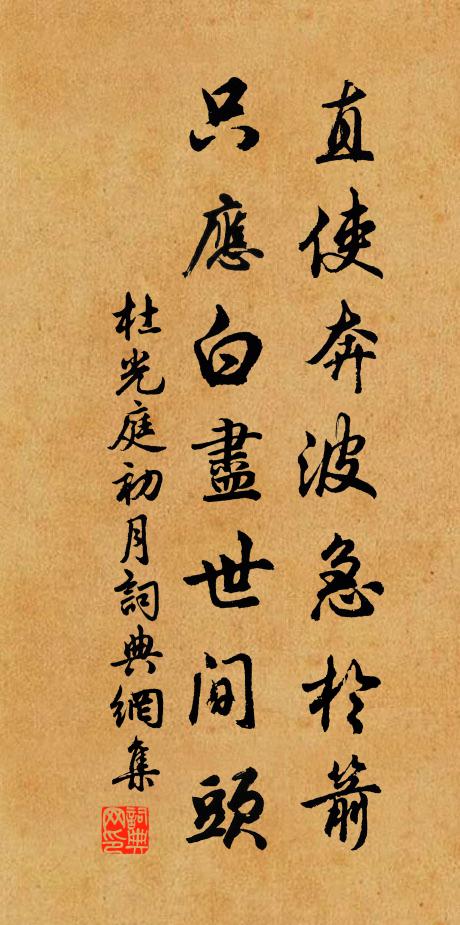 直使奔波急於箭
只應白盡世間頭
杜光庭初月詞典網集
詞典网印